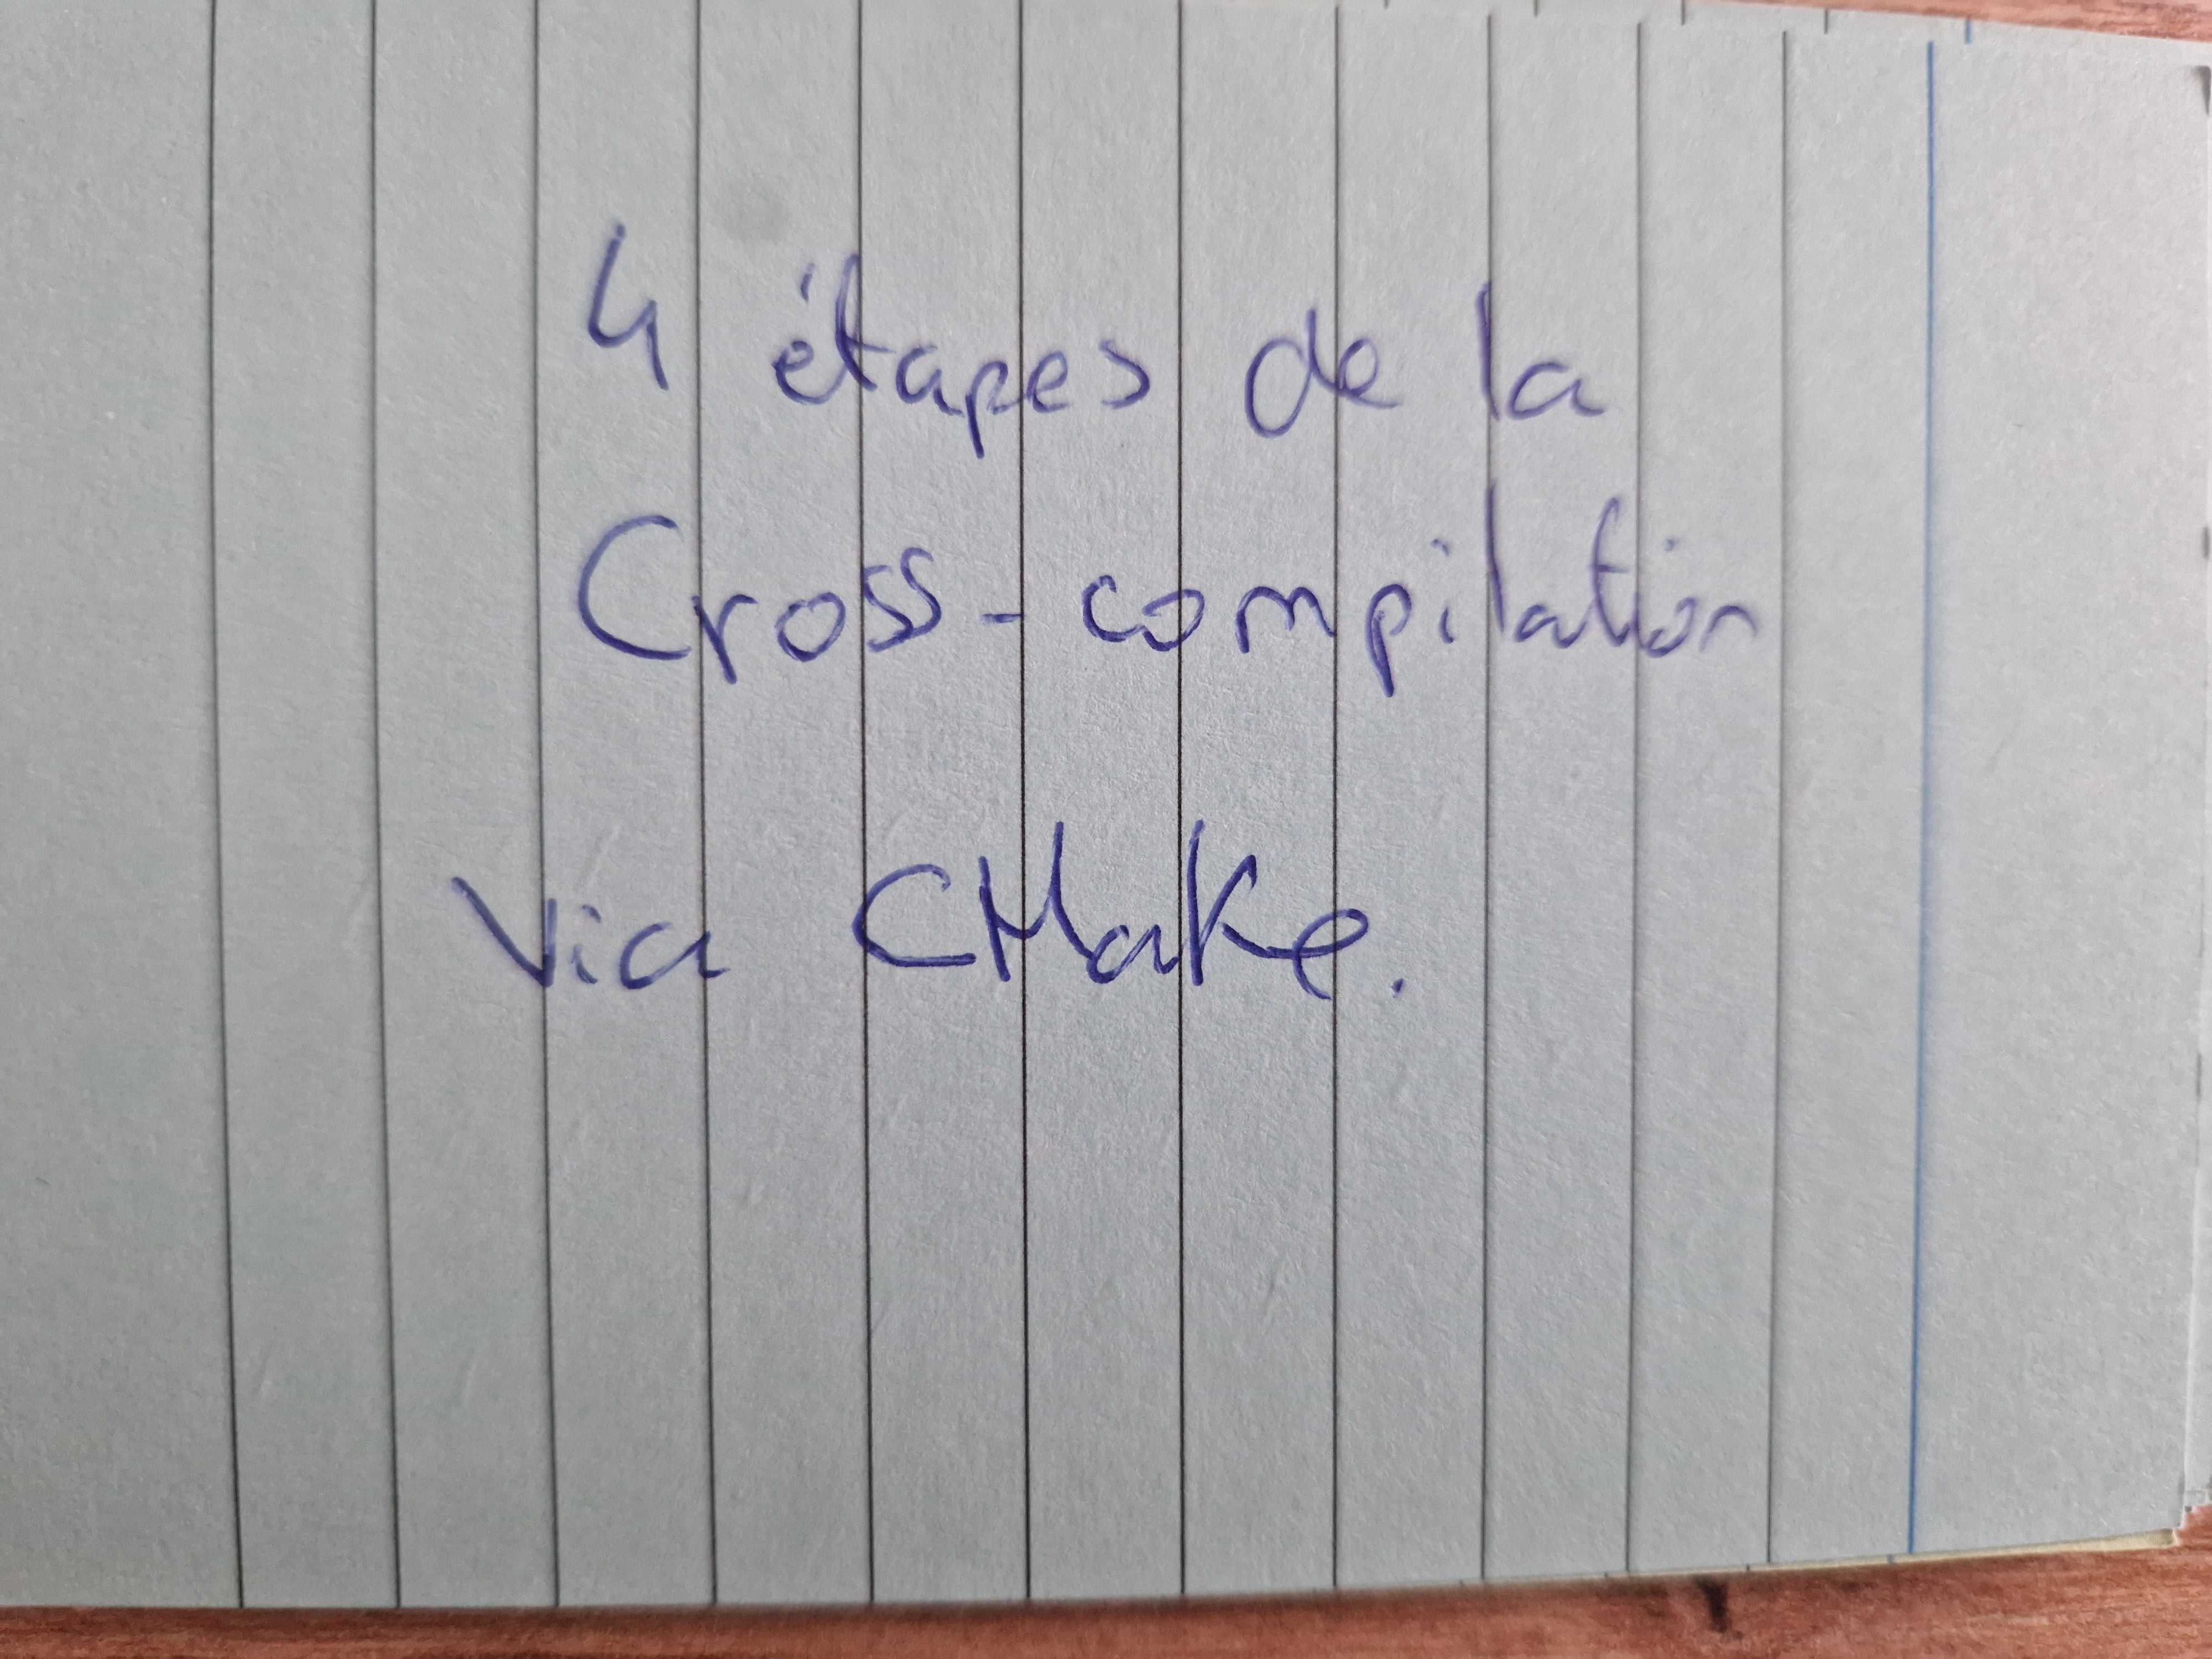 4 étapes de la
Cross-compilation
via CMake.